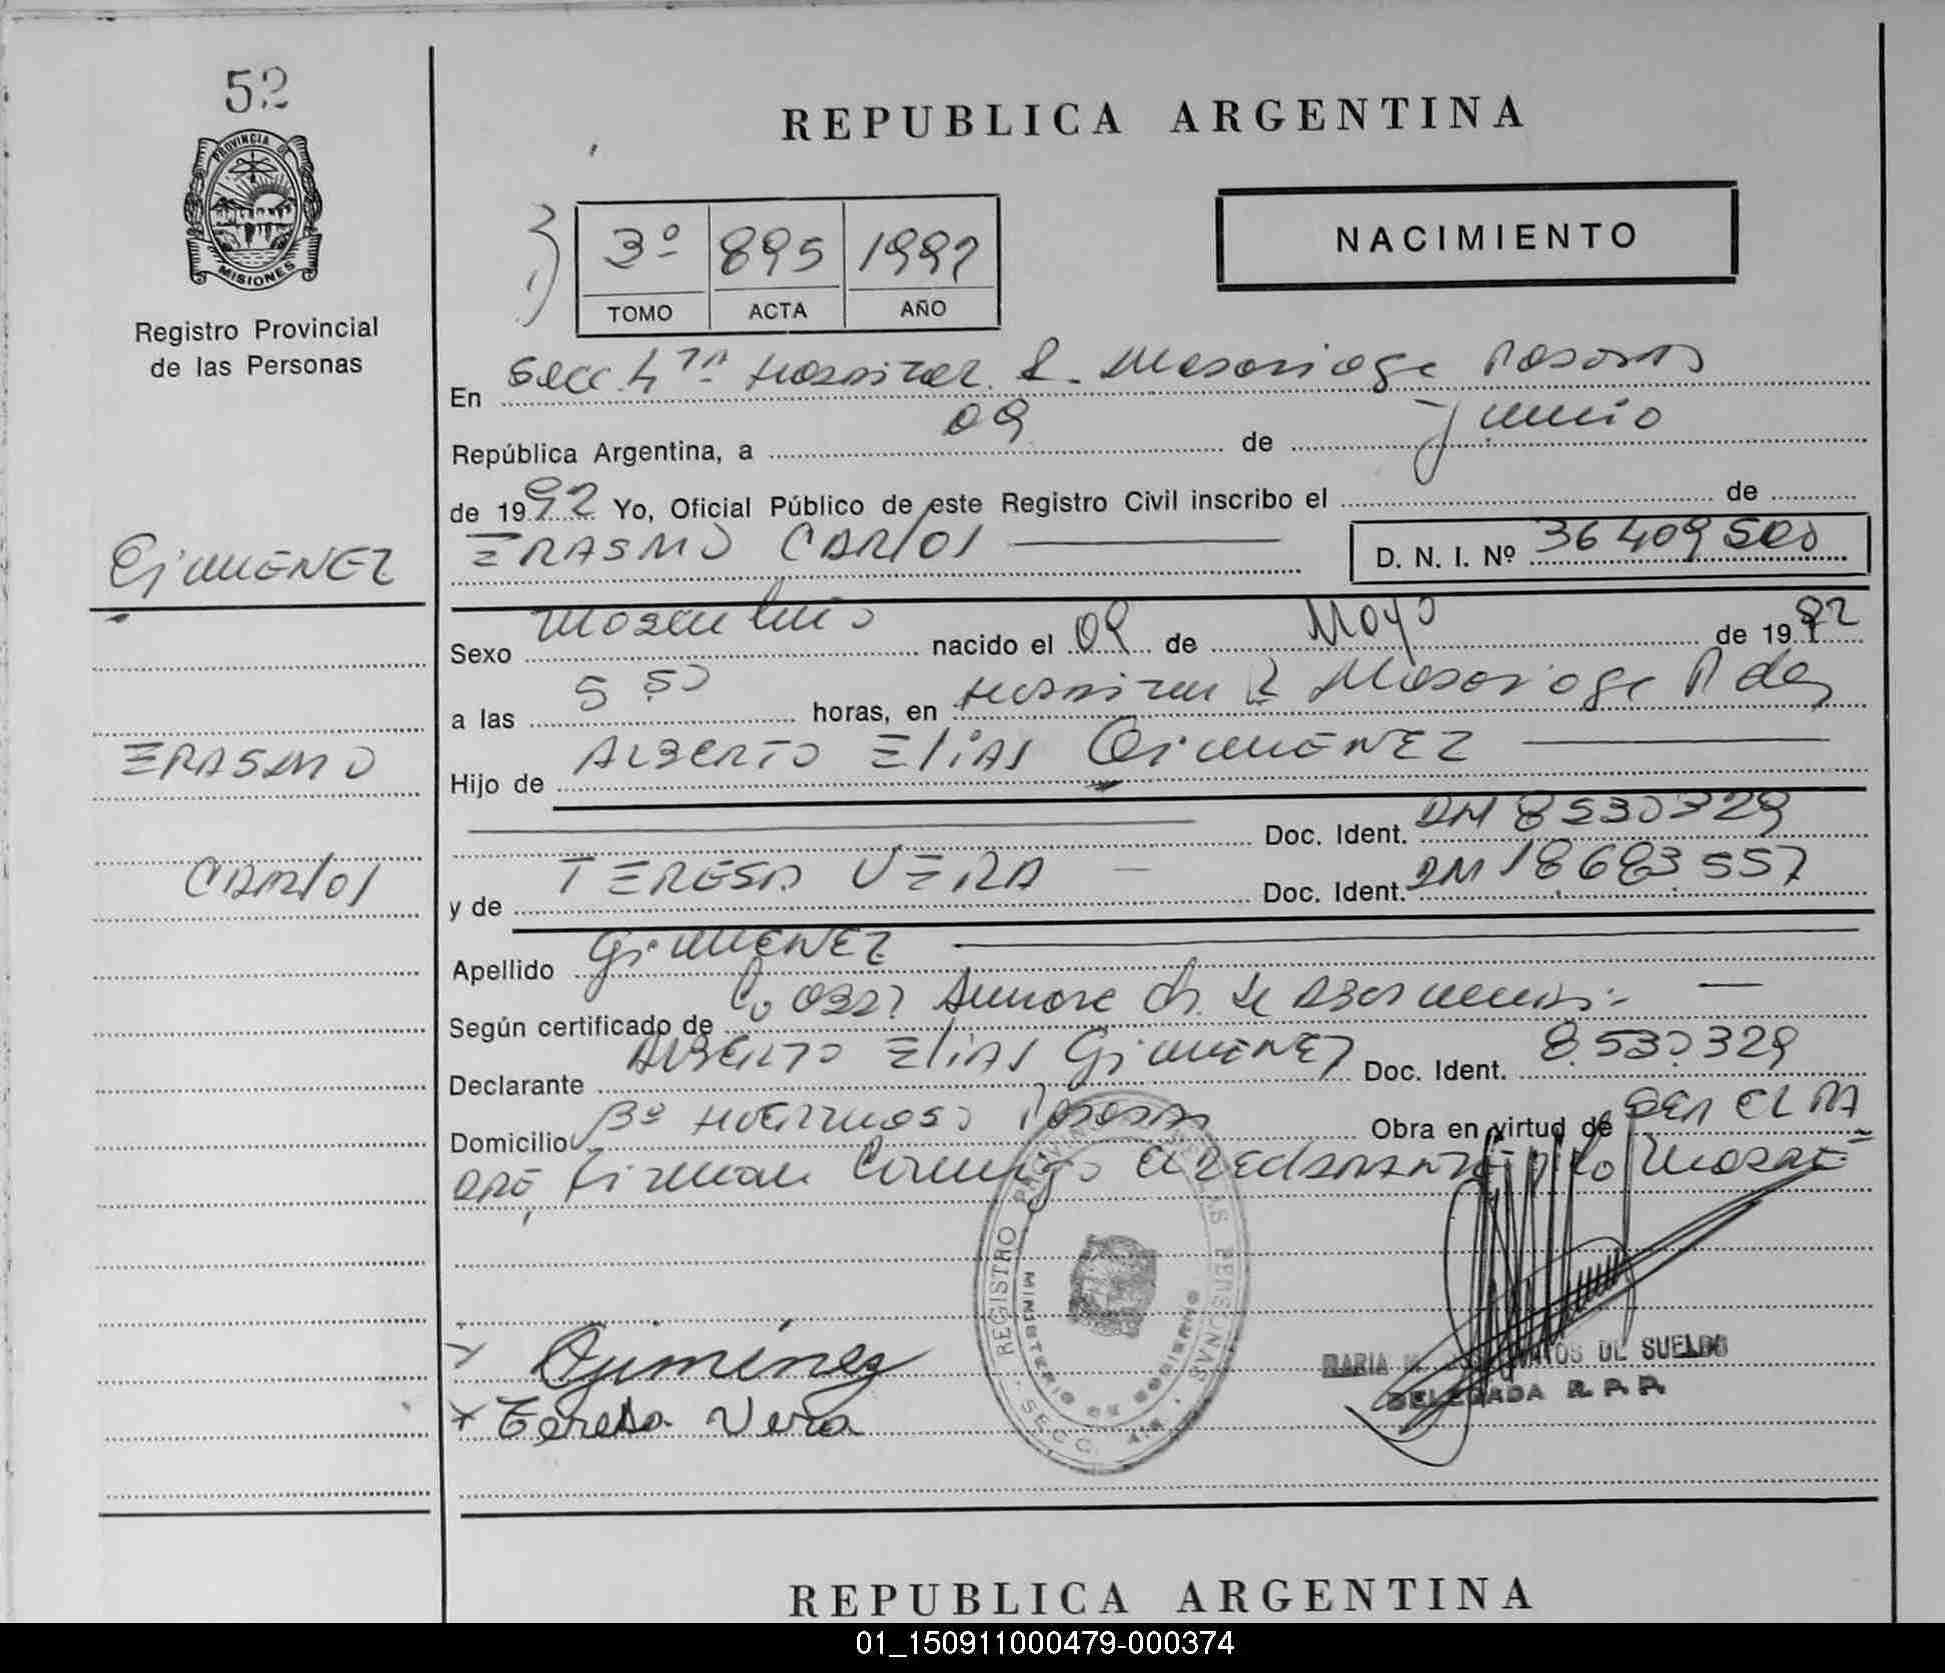 52
PROVINCIA DE
MISIONES
Registro Provincial
de las Personas
REPUBLICA ARGENTINA
NACIMIENTO
3º 895 1992
TOMO ACTA AÑO
En Secc 4ta Hospital R. Madariaga Posadas
República Argentina, a 09 de Junio
de 1992 Yo, Oficial Público de este Registro Civil inscribo el de
GiMENEZ
ERASMO CARlOS
D. N. I. Nº 36409500
Sexo Masculino nacido el 09 de Mayo de 1992
a las 5 50 horas, en Hospital R Madariaga Pdas
ERASMO
Hijo de ALBERTO ElíAS GiMENEZ
Doc. Ident. DM 8530329
CARlOS
y de TERESA VERA Doc. Ident. DM 18683557
Apellido GiMENEZ
Según certificado de
Declarante ALBERTO ElíAS GiMENEZ Doc. Ident. 8.530.329
Domicilio Bº Posadas Obra en virtud de SER EL PA
DRE firman Conmigo el declarante y la Madre
REGISTRO PROVINCIAL DE LAS PERSONAS
MINISTERIO DE GOBIERNO
SECC. 4ta
Gimenez
x Teresa Vera
MARIA DE SUELDO
DELEGADA R. P. P.
REPUBLICA ARGENTINA
01_150911000479-000374